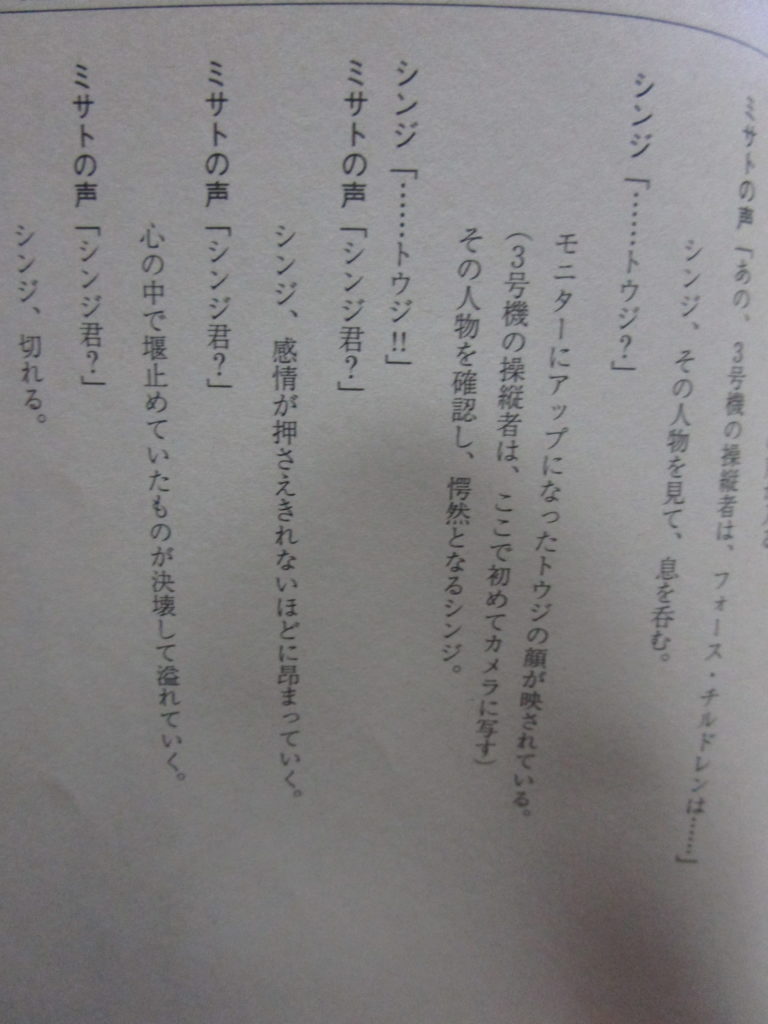 ミサトの声「あの、3号機の操縦者は、フォース・チルドレンは……」
シンジ、その人物を見て、息を呑む。
シンジ「……トウジ?」
モニターにアップになったトウジの顔が映されている。
(3号機の操縦者は、ここで初めてカメラに写す)
その人物を確認し、愕然となるシンジ。
シンジ「……トウジ!!」
ミサトの声「シンジ君?」
シンジ、感情が押さえきれないほどに昂まっていく。
ミサトの声「シンジ君?」
心の中で堰止めていたものが決壊して溢れていく。
ミサトの声「シンジ君?」
シンジ、切れる。